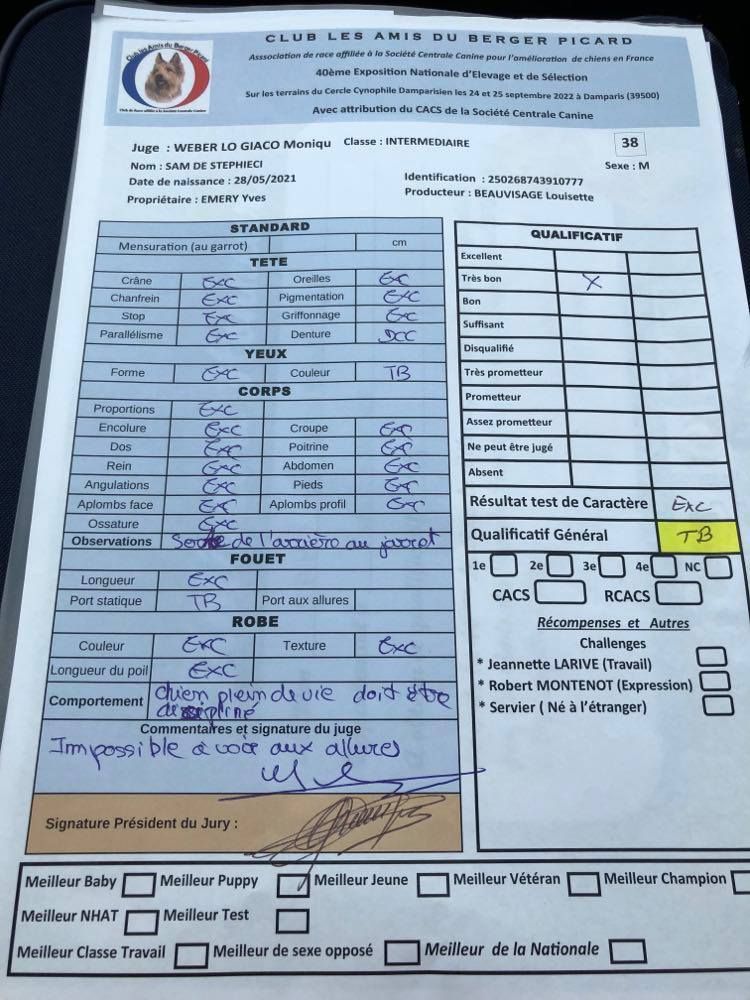 Club les Amis du Berger Picard
CLUB LES AMIS DU BERGER PICARD
Asssociation de race affiliée à la Société Centrale Canine pour l'amélioration de chiens en France
40ème Exposition Nationale d'Elevage et de Sélection
Sur les terrains du Cercle Cynophile Damparisien les 24 et 25 septembre 2022 à Damparis (39500)
Avec attribution du CACS de la Société Centrale Canine
Club de Race affilié à la Société Centrale Canine
Juge : WEBER LO GIACO Moniqu Classe : INTERMEDIAIRE 38
Nom : SAM DE STEPHIECI Sexe : M
Date de naissance : 28/05/2021 Identification : 250268743910777
Propriétaire : EMERY Yves Producteur : BEAUVISAGE Louisette
STANDARD
Mensuration (au garrot) cm
TETE
Crâne Exc Oreilles Exc
Chanfrein Exc Pigmentation Exc
Stop Exc Griffonnage Exc
Parallélisme Exc Denture DCC
YEUX
Forme Exc Couleur TB
CORPS
Proportions Exc
Encolure Exc Croupe Exc
Dos Exc Poitrine Exc
Rein Exc Abdomen Exc
Angulations Exc Pieds Exc
Aplombs face Exc Aplombs profil Exc
Ossature Exc
Observations de l'arrière au jarrot
FOUET
Longueur Exc
Port statique TB Port aux allures
ROBE
Couleur Exc Texture Exc
Longueur du poil Exc
Comportement chien plein de vie doit être
discipliné
Commentaires et signature du juge
Impossible à voir aux allures
Signature Président du Jury :
QUALIFICATIF
Excellent
Très bon X
Bon
Suffisant
Disqualifié
Très prometteur
Prometteur
Assez prometteur
Ne peut être jugé
Absent
Résultat test de Caractère Exc
Qualificatif Général TB
1e 2e 3e 4e NC
CACS RCACS
Récompenses et Autres
Challenges
* Jeannette LARIVE (Travail)
* Robert MONTENOT (Expression)
* Servier ( Né à l'étranger)
Meilleur Baby Meilleur Puppy Meilleur Jeune Meilleur Vétéran Meilleur Champion
Meilleur NHAT Meilleur Test
Meilleur Classe Travail Meilleur de sexe opposé Meilleur de la Nationale